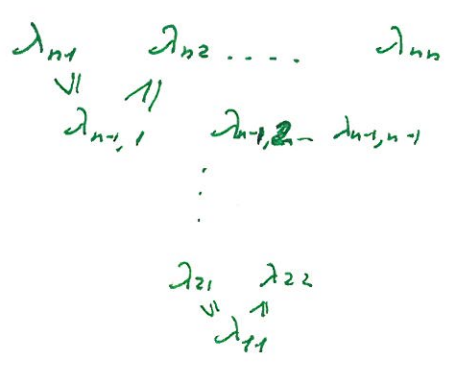 λn1 λn2 .... λnn
≥ ≥
λn-1,1 λn-1,2 - λn-1,n-1
⋮
λ21 λ22
≥ ≥
λ11